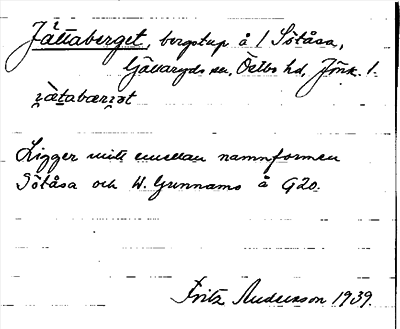 Jättaberget, bergstup å 1 Sötåsa,
Gällaryds sn, Östbo hd, Jönk. l.
Ligger mitt emellan namnformen
Sötåsa och W. Gunnamo å G20.
Fritz Andersson 1939.